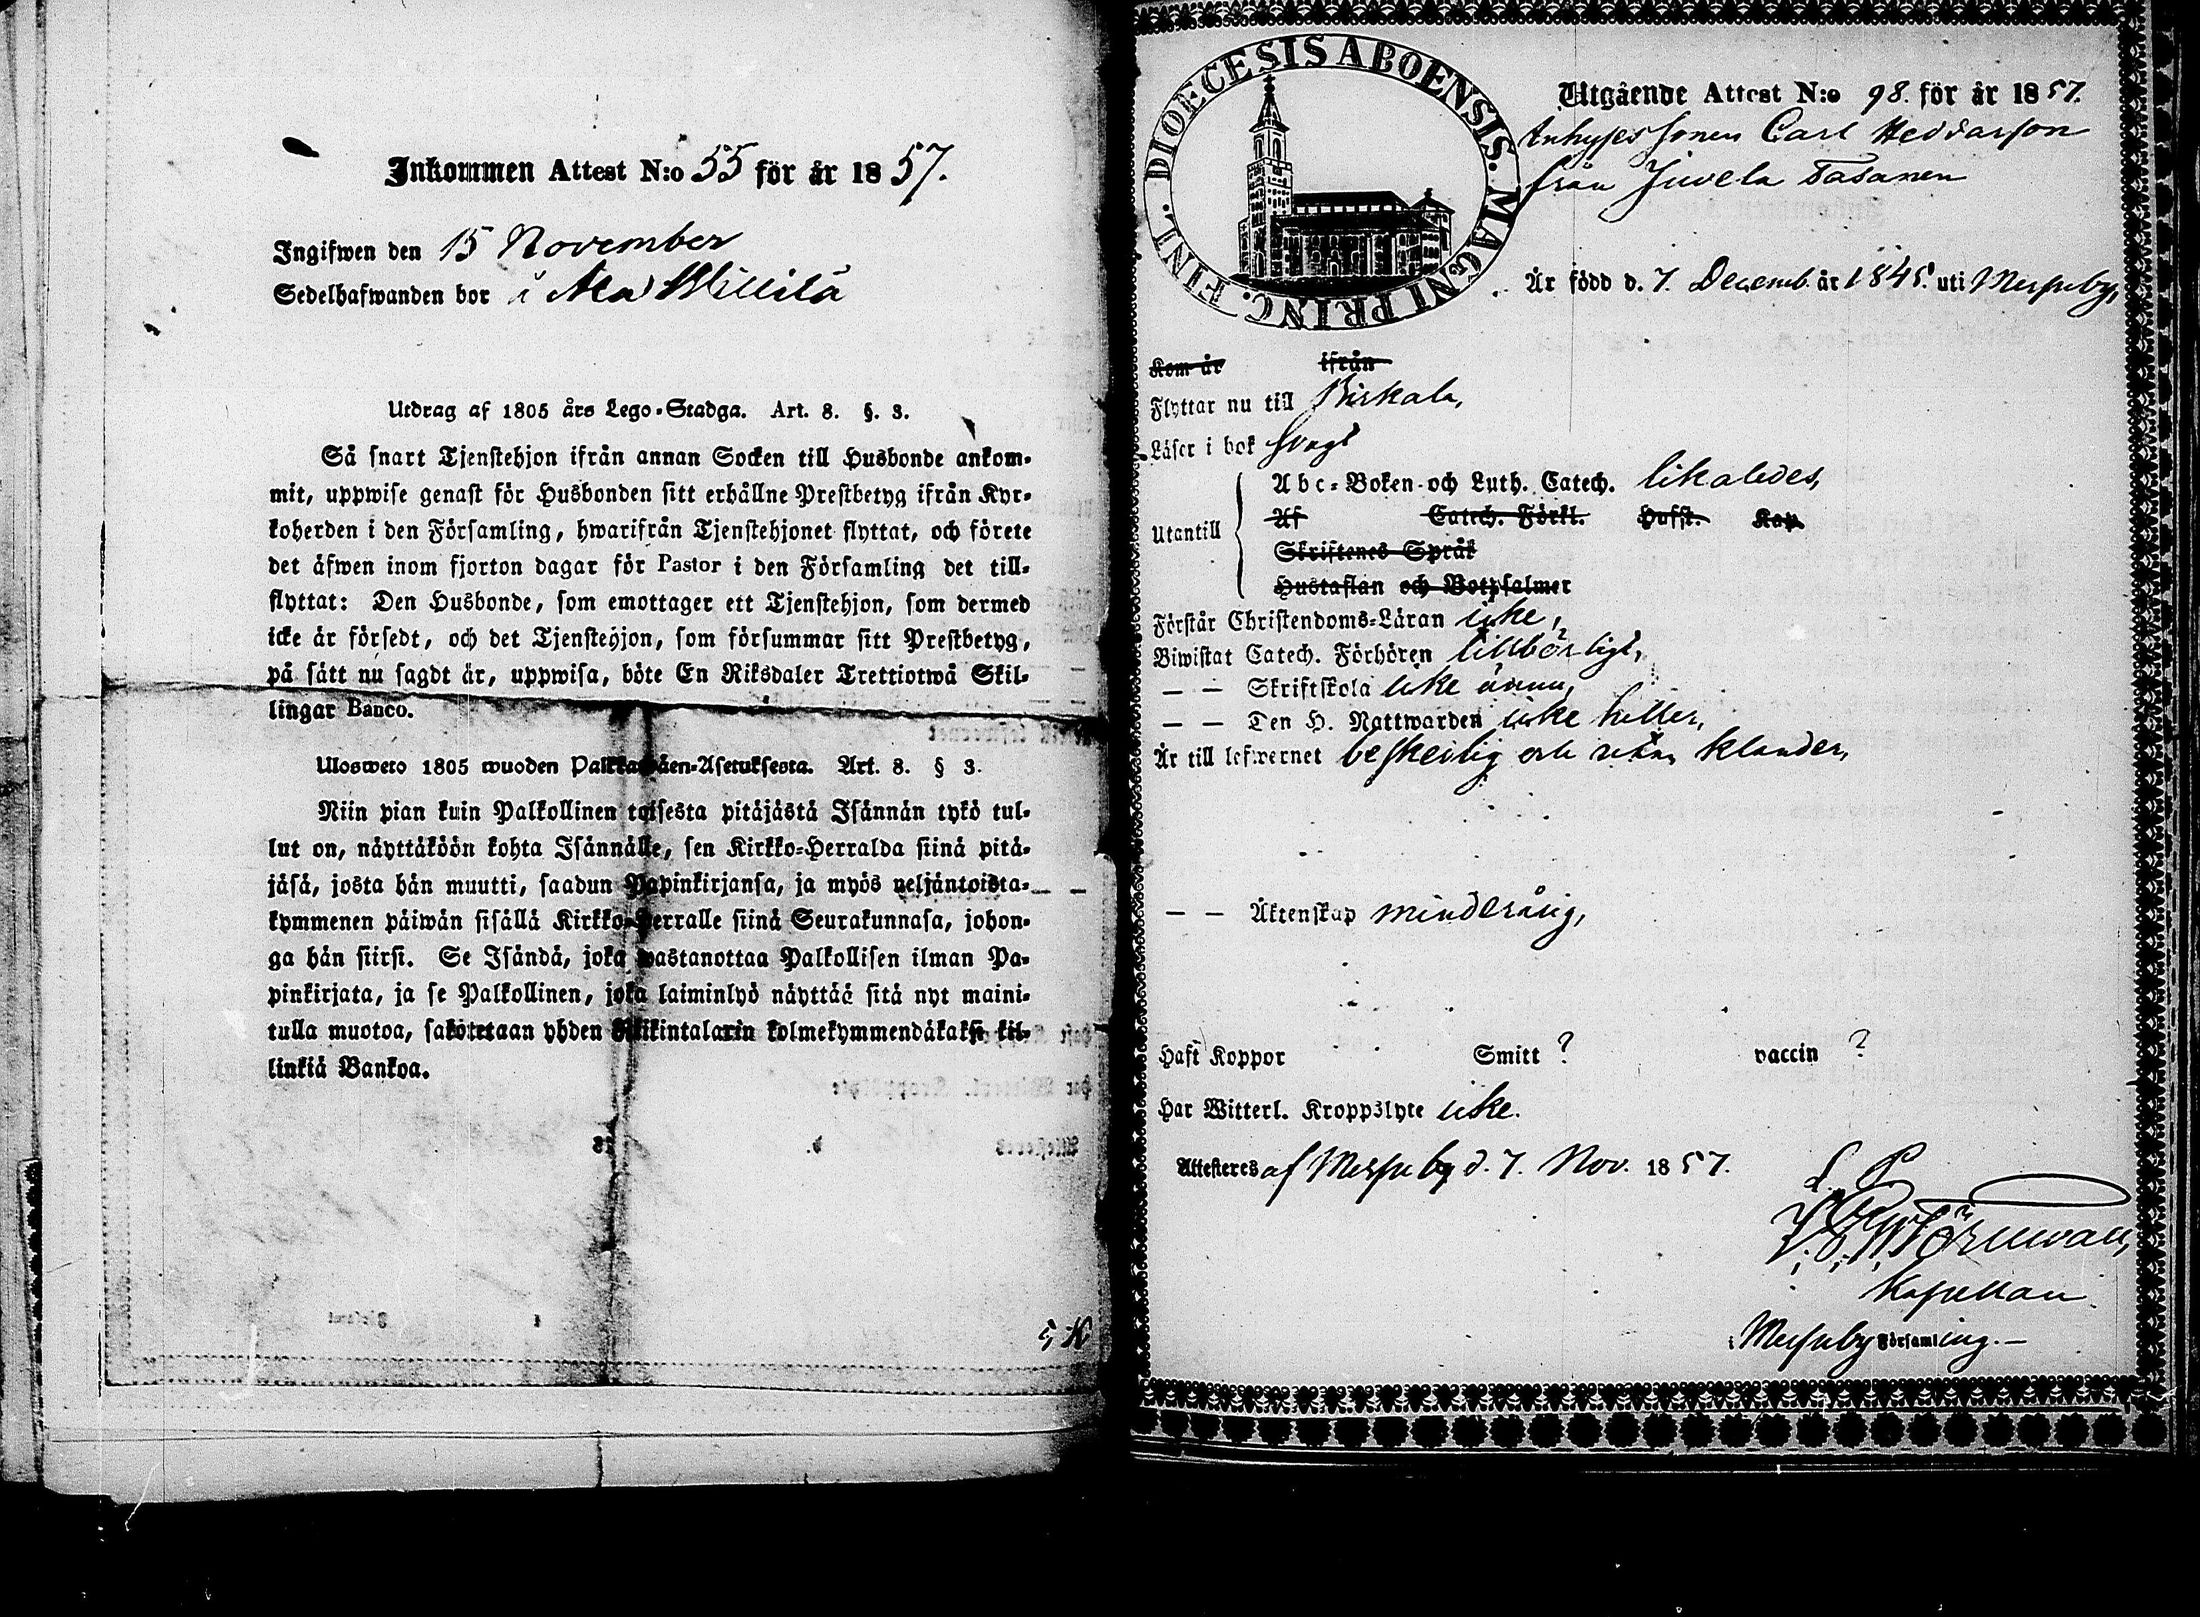 Inkommen Attest N:o 55 för år 1857.
Ingifwen den 15 November
Sedelhafwanden bor i Ala Willilä
Utdrag af 1805 års Lego-Stadga. Art. 8. §. 3.
Så snart Tjenstehjon ifrån annan Socken till Husbonde ankom-
mit, uppwise genast för Husbonden sitt erhållne Prestbetyg ifrån Kyr-
koherden i den Församling, hwarifrån Tjenstehjonet flyttat, och förete
det äfwen inom fjorton dagar för Pastor i den Församling det till-
flyttat: Den Husbonde, som emottager ett Tjenstehjon, som dermed
icke är försedt, och det Tjenstehjon, som försummar sitt Prestbetyg,
på sätt nu sagdt är, uppwisa, böte En Riksdaler Trettiotwå Skil-
lingar Banco.
Ulosweto 1805 wuoden Palkkawäen-Asetuksesta. Art. 8. § 3.
Niin pian kuin Palkollinen toisesta pitäjästä Isännän tykö tul-
lut on, näyttäköön kohta Isännälle, sen Kirkko-Herralda siinä pitä-
jäsä, josta hän muutti, saadun Papinkirjansa, ja myös neljäntoista-
kymmenen päiwän sisällä Kirkko-Herralle siinä Seurakunnasa, johon-
ga hän siirsi. Se Isändä, joka wastanottaa Palkollisen ilman Pa-
pinkirjata, ja se Palkollinen, joka laiminlyö näyttää sitä nyt maini-
tulla muotoa, sakotetaan yhden Riikintalarin kolmekymmendäkaksi kil-
linkiä Bankoa.
DIOECESIS ABOENSIS. MAGNI PRINC. FINL.
Utgående Attest N:o 98. för år 1857.
Inhyses sonen Carl Heddarson
från Juvela Tasanen
Är född d. 7. Decemb. år 1845. uti Messuby,
Kom år ifrån
Flyttar nu till Birkala,
Läser i bok svagt
Utantill
Abc-Boken och Luth. Catech. likaledes,
Af Catech. Förkl. Hufst. Kap.
Skriftenes Språk
Hustaflan och Botpsalmer
Förstår Christendoms-Läran icke,
Biwistat Catech. Förhören tillbörligt,
— — Skriftskola icke ännu,
— — Den H. Nattwarden icke heller,
Är till lefwernet beskedlig och utan klander,
— — Äktenskap minderårig,
Haft Koppor Smitt ? vaccin ?
Har Witterl. Kroppslyte icke.
Attesteres af Messuby d. 7. Nov. 1857.
L. S.
Kapellan
i Messuby Församling.—